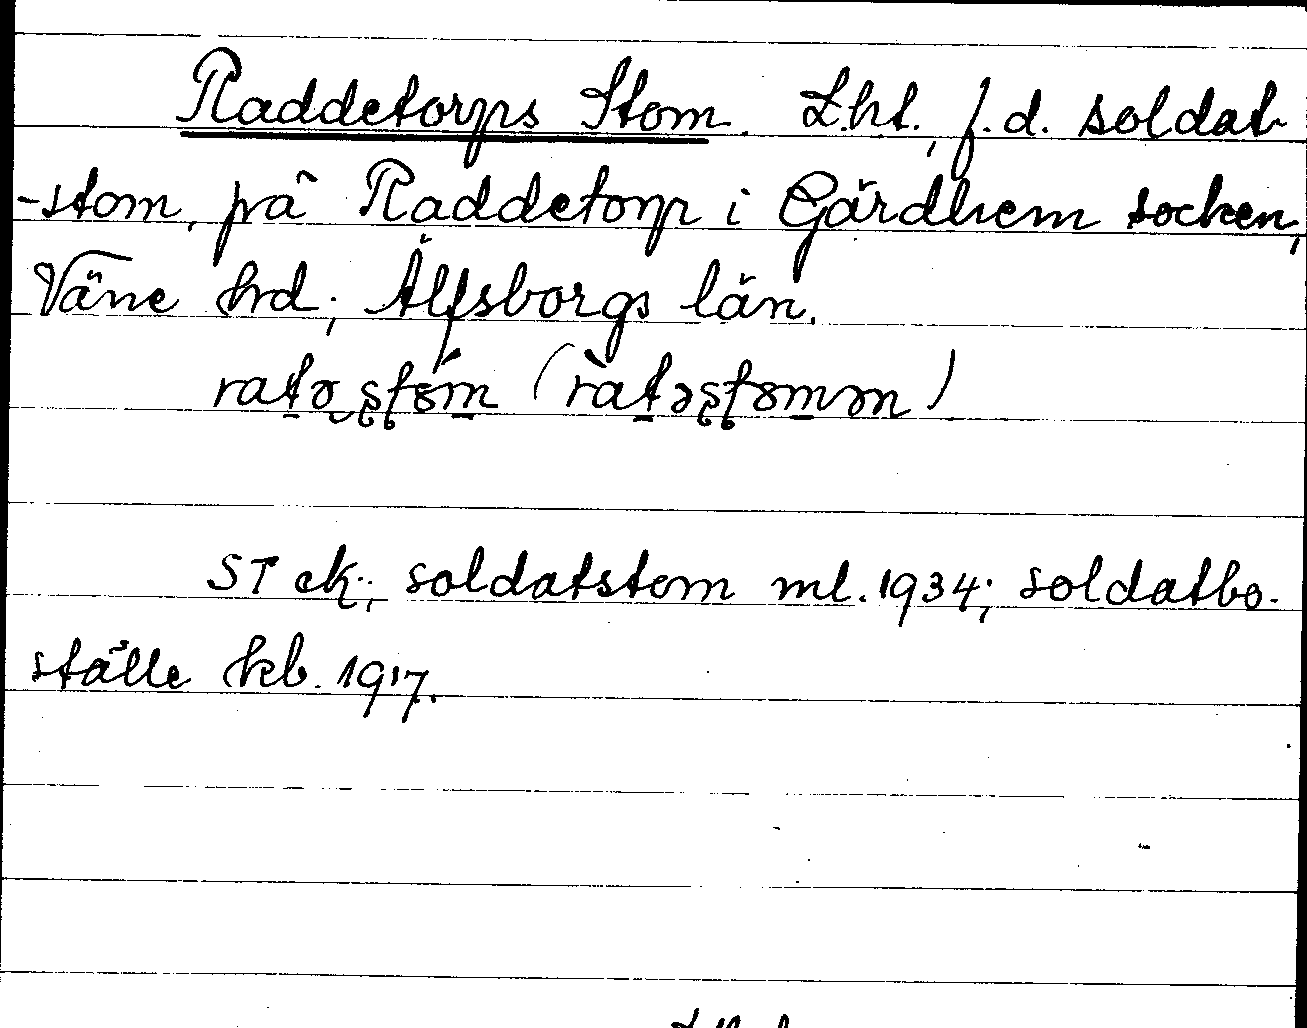 Raddetorps Stom. Lht., f.d. soldat
-stom, på Raddetorp i Gärdhem socken,
Väne hd; Älfsborgs län.
STek.; soldatstom ml. 1934; soldatbo-
ställe kb. 1917.